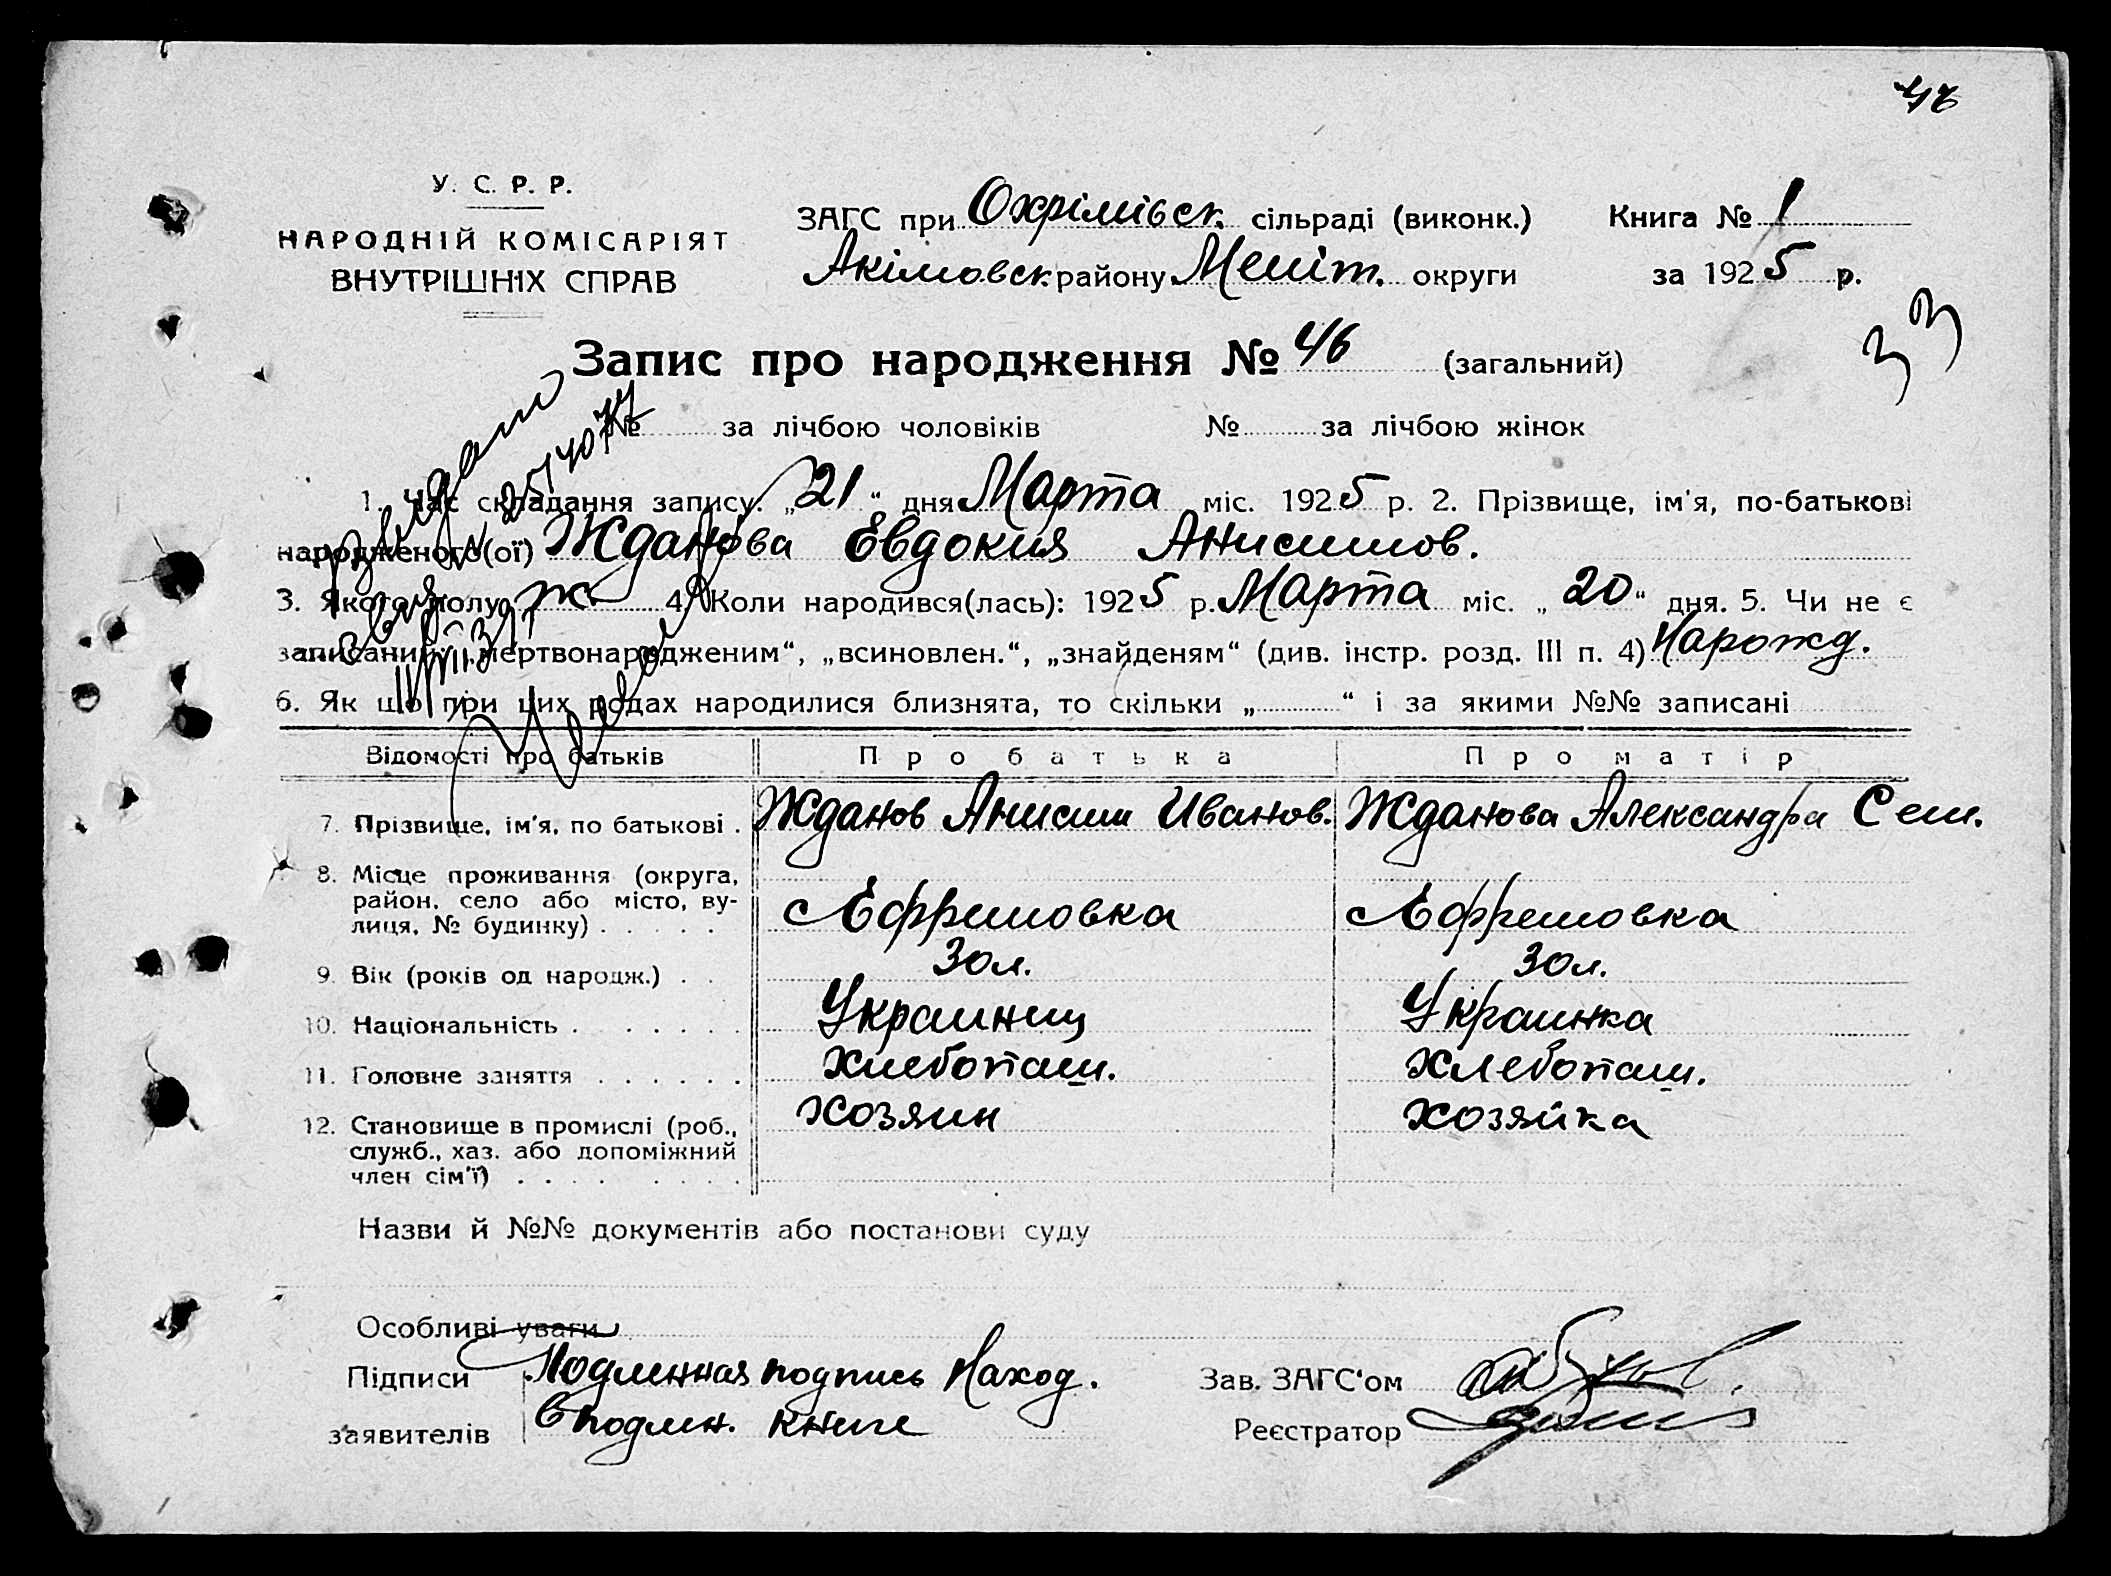 46
У. С. Р. Р.
НАРОДНІЙ КОМІСАРІЯТ
ВНУТРІШНІХ СПРАВ
ЗАГС при Охрімівск. сільраді (виконк.) Книга № 1
Акімовск. району Меліт. округи за 1925 р.
33
Запис про народження № 46 (загальний)
№ за лічбою чоловіків № за лічбою жінок
1. Час складання запису: „21“ дня Марта міс. 1925 р. 2. Прізвище, ім'я, по-батькові
народженого(ої) Жданова Евдокия Анисимов.
3. Якого полу ж. 4. Коли народився(лась): 1925 р. Марта міс. „20“ дня. 5. Чи не є
записаний: „мертвонародженим“, „всиновлен.“, „знайденям“ (див. інстр. розд. III п. 4) Нарожд.
6. Як що при цих родах народилися близнята, то скільки „ “ і за якими №№ записані
Відомості про батьків Про батька Про матір
7. Прізвище, ім'я, по батькові . Жданов Анисим Иванов. Жданова Александра Сем.
8. Місце проживання (округа,
район, село або місто, ву-
лиця, № будинку) . . . . . Ефремовка Ефремовка
9. Вік (років од народж.) . . 30 л. 30 л.
10. Національність . . . . . . Украинец Украинка
11. Головне заняття . . . . . . Хлебопаш. Хлебопаш.
12. Становище в промислі (роб., Хозяин Хозяйка
служб., хаз. або допоміжний
член сім'ї) . . . . . . . .
Назви й №№ документів або постанови суду
Особливі уваги
Підписи Подленная подпись Наход. Зав. ЗАГС'ом
заявителів в подлен. книге Реєстратор